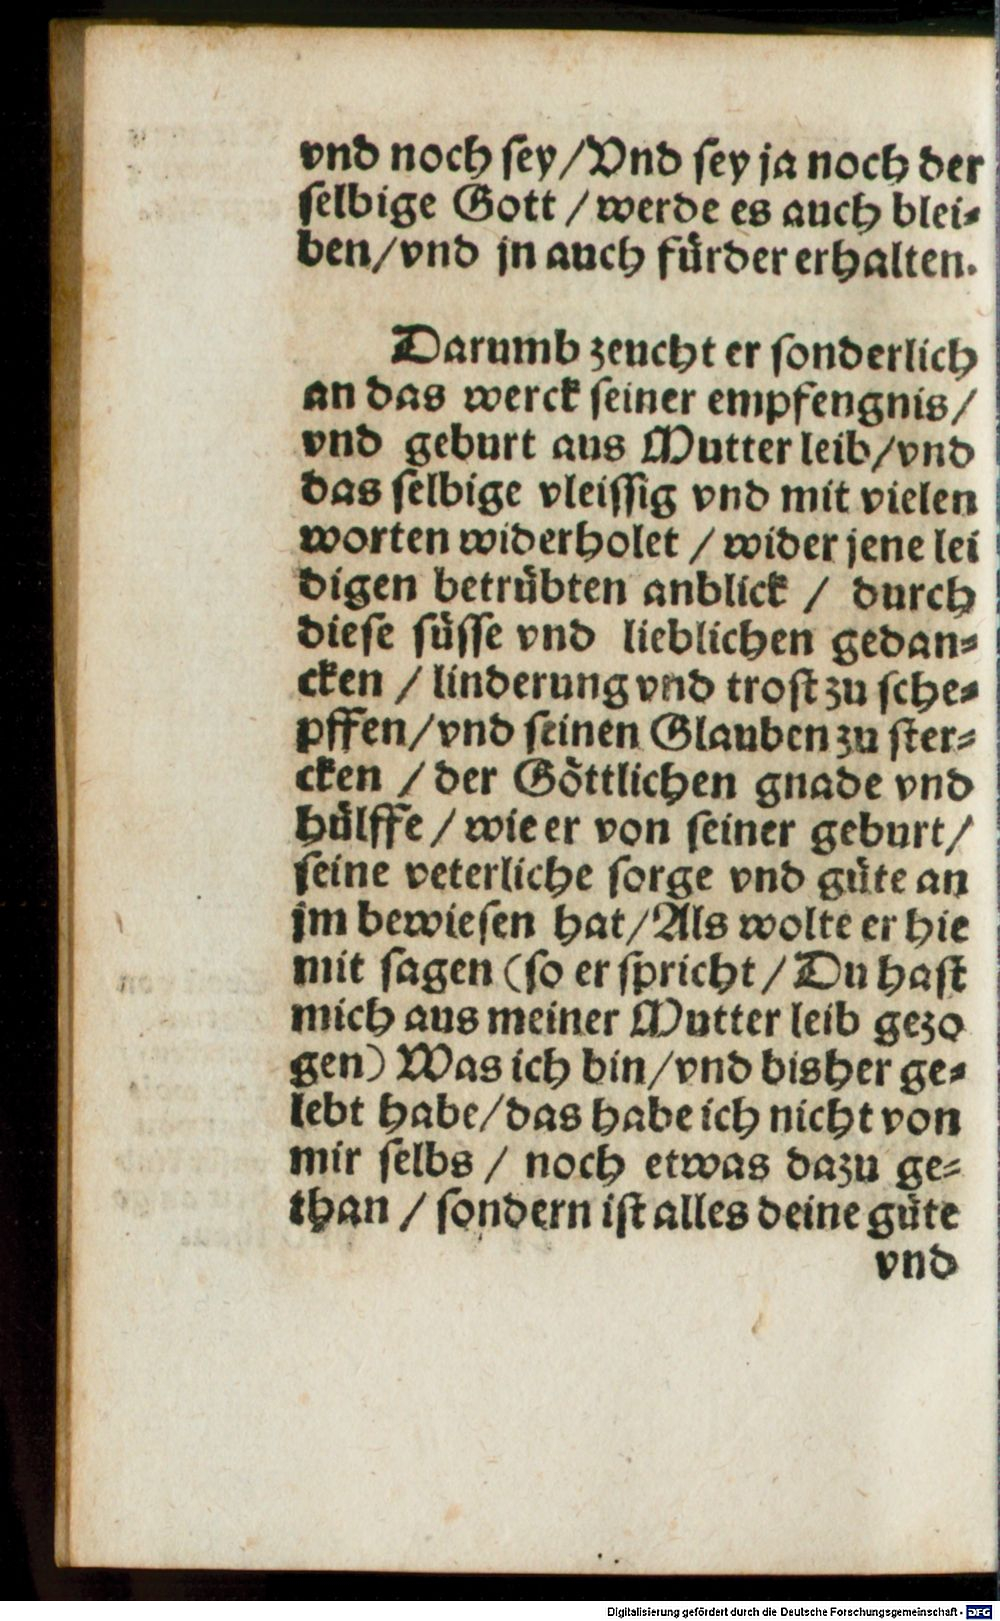 vnd noch sey/Vnd sey ja noch der
selbige Gott / werde es auch blei-
ben/vnd jn auch fürder erhalten.
Darumb zeucht er sonderlich
an das werck seiner empfengnis/
vnd geburt aus Mutter leib/vnd
das selbige vleissig vnd mit vielen
worten widerholet / wider jene lei
digen betrübten anblick / durch
diese süsse vnd lieblichen gedan-
cken / linderung vnd trost zu sche-
pffen/vnd seinen Glauben zu ster-
cken / der Göttlichen gnade vnd
hülffe / wie er von seiner geburt/
seine veterliche sorge vnd güte an
jm bewiesen hat/Als wolte er hie
mit sagen (so er spricht / Du hast
mich aus meiner Mutter leib gezo
gen) Was ich bin/vnd bisher ge-
lebt habe/das habe ich nicht von
mir selbs / noch etwas dazu ge-
than / sondern ist alles deine güte
vnd
Digitalisierung gefördert durch die Deutsche Forschungsgemeinschaft - DFG